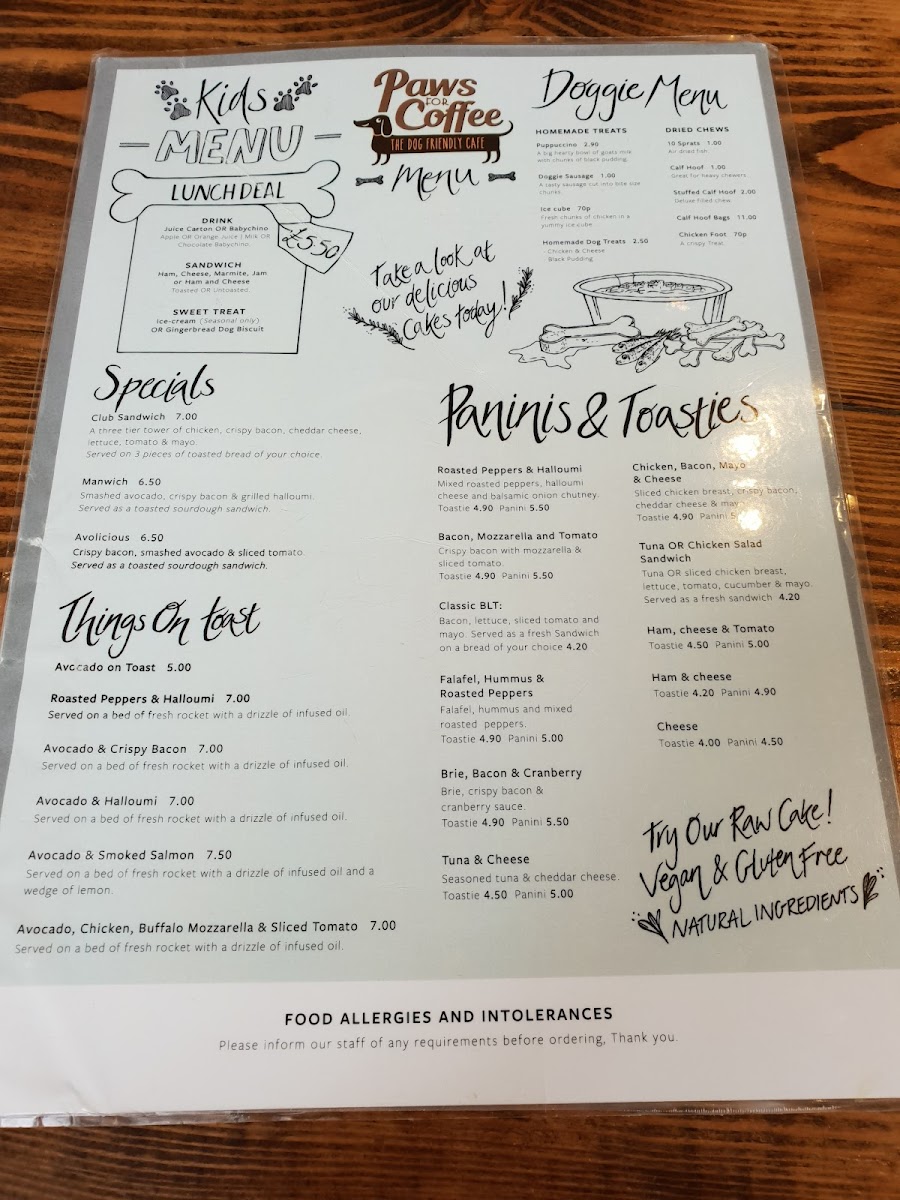 Kids
MENU
LUNCH DEAL
£5.50
DRINK
Juice Carton OR Babychino
Apple OR Orange Juice | Milk OR
Chocolate Babychino.
SANDWICH
Ham, Cheese, Marmite, Jam
or Ham and Cheese
Toasted OR Untoasted.
SWEET TREAT
Ice-cream (Seasonal only)
OR Gingerbread Dog Biscuit
Paws
FOR
Coffee
THE DOG FRIENDLY CAFE
Menu
Take a look at
our delicious
Cakes today!
Doggie Menu
HOMEMADE TREATS
Puppuccino 2.90
A big hearty bowl of goats milk
with chunks of black pudding.
Doggie Sausage 1.00
A tasty sausage cut into bite size
chunks.
Ice cube 70p
Fresh chunks of chicken in a
yummy ice cube.
Homemade Dog Treats 2.50
Chicken & Cheese
Black Pudding
DRIED CHEWS
10 Sprats 1.00
Air dried fish.
Calf Hoof 1.00
Great for heavy chewers
Stuffed Calf Hoof 2.00
Deluxe filled chew.
Calf Hoof Bags 11.00
Chicken Foot 70p
A crispy Treat.
Specials
Club Sandwich 7.00
A three tier tower of chicken, crispy bacon, cheddar cheese,
lettuce, tomato & mayo.
Served on 3 pieces of toasted bread of your choice.
Manwich 6.50
Smashed avocado, crispy bacon & grilled halloumi.
Served as a toasted sourdough sandwich.
Avolicious 6.50
Crispy bacon, smashed avocado & sliced tomato.
Served as a toasted sourdough sandwich.
Things On toast
Avocado on Toast 5.00
Roasted Peppers & Halloumi 7.00
Served on a bed of fresh rocket with a drizzle of infused oil.
Avocado & Crispy Bacon 7.00
Served on a bed of fresh rocket with a drizzle of infused oil.
Avocado & Halloumi 7.00
Served on a bed of fresh rocket with a drizzle of infused oil.
Avocado & Smoked Salmon 7.50
Served on a bed of fresh rocket with a drizzle of infused oil and a
wedge of lemon.
Avocado, Chicken, Buffalo Mozzarella & Sliced Tomato 7.00
Served on a bed of fresh rocket with a drizzle of infused oil.
Paninis & Toasties
Roasted Peppers & Halloumi
Mixed roasted peppers, halloumi
cheese and balsamic onion chutney.
Toastie 4.90 Panini 5.50
Bacon, Mozzarella and Tomato
Crispy bacon with mozzarella &
sliced tomato.
Toastie 4.90 Panini 5.50
Classic BLT:
Bacon, lettuce, sliced tomato and
mayo. Served as a fresh Sandwich
on a bread of your choice 4.20
Falafel, Hummus &
Roasted Peppers
Falafel, hummus and mixed
roasted peppers.
Toastie 4.90 Panini 5.00
Brie, Bacon & Cranberry
Brie, crispy bacon &
cranberry sauce.
Toastie 4.90 Panini 5.50
Tuna & Cheese
Seasoned tuna & cheddar cheese.
Toastie 4.50 Panini 5.00
Chicken, Bacon, Mayo
& Cheese
Sliced chicken breast, crispy bacon,
cheddar cheese & mayo
Toastie 4.90 Panini
Tuna OR Chicken Salad
Sandwich
Tuna OR sliced chicken breast,
lettuce, tomato, cucumber & mayo.
Served as a fresh sandwich 4.20
Ham, cheese & Tomato
Toastie 4.50 Panini 5.00
Ham & cheese
Toastie 4.20 Panini 4.90
Cheese
Toastie 4.00 Panini 4.50
Try Our Raw Cake!
Vegan & Gluten Free
NATURAL INGREDIENTS
FOOD ALLERGIES AND INTOLERANCES
Please inform our staff of any requirements before ordering, Thank you.